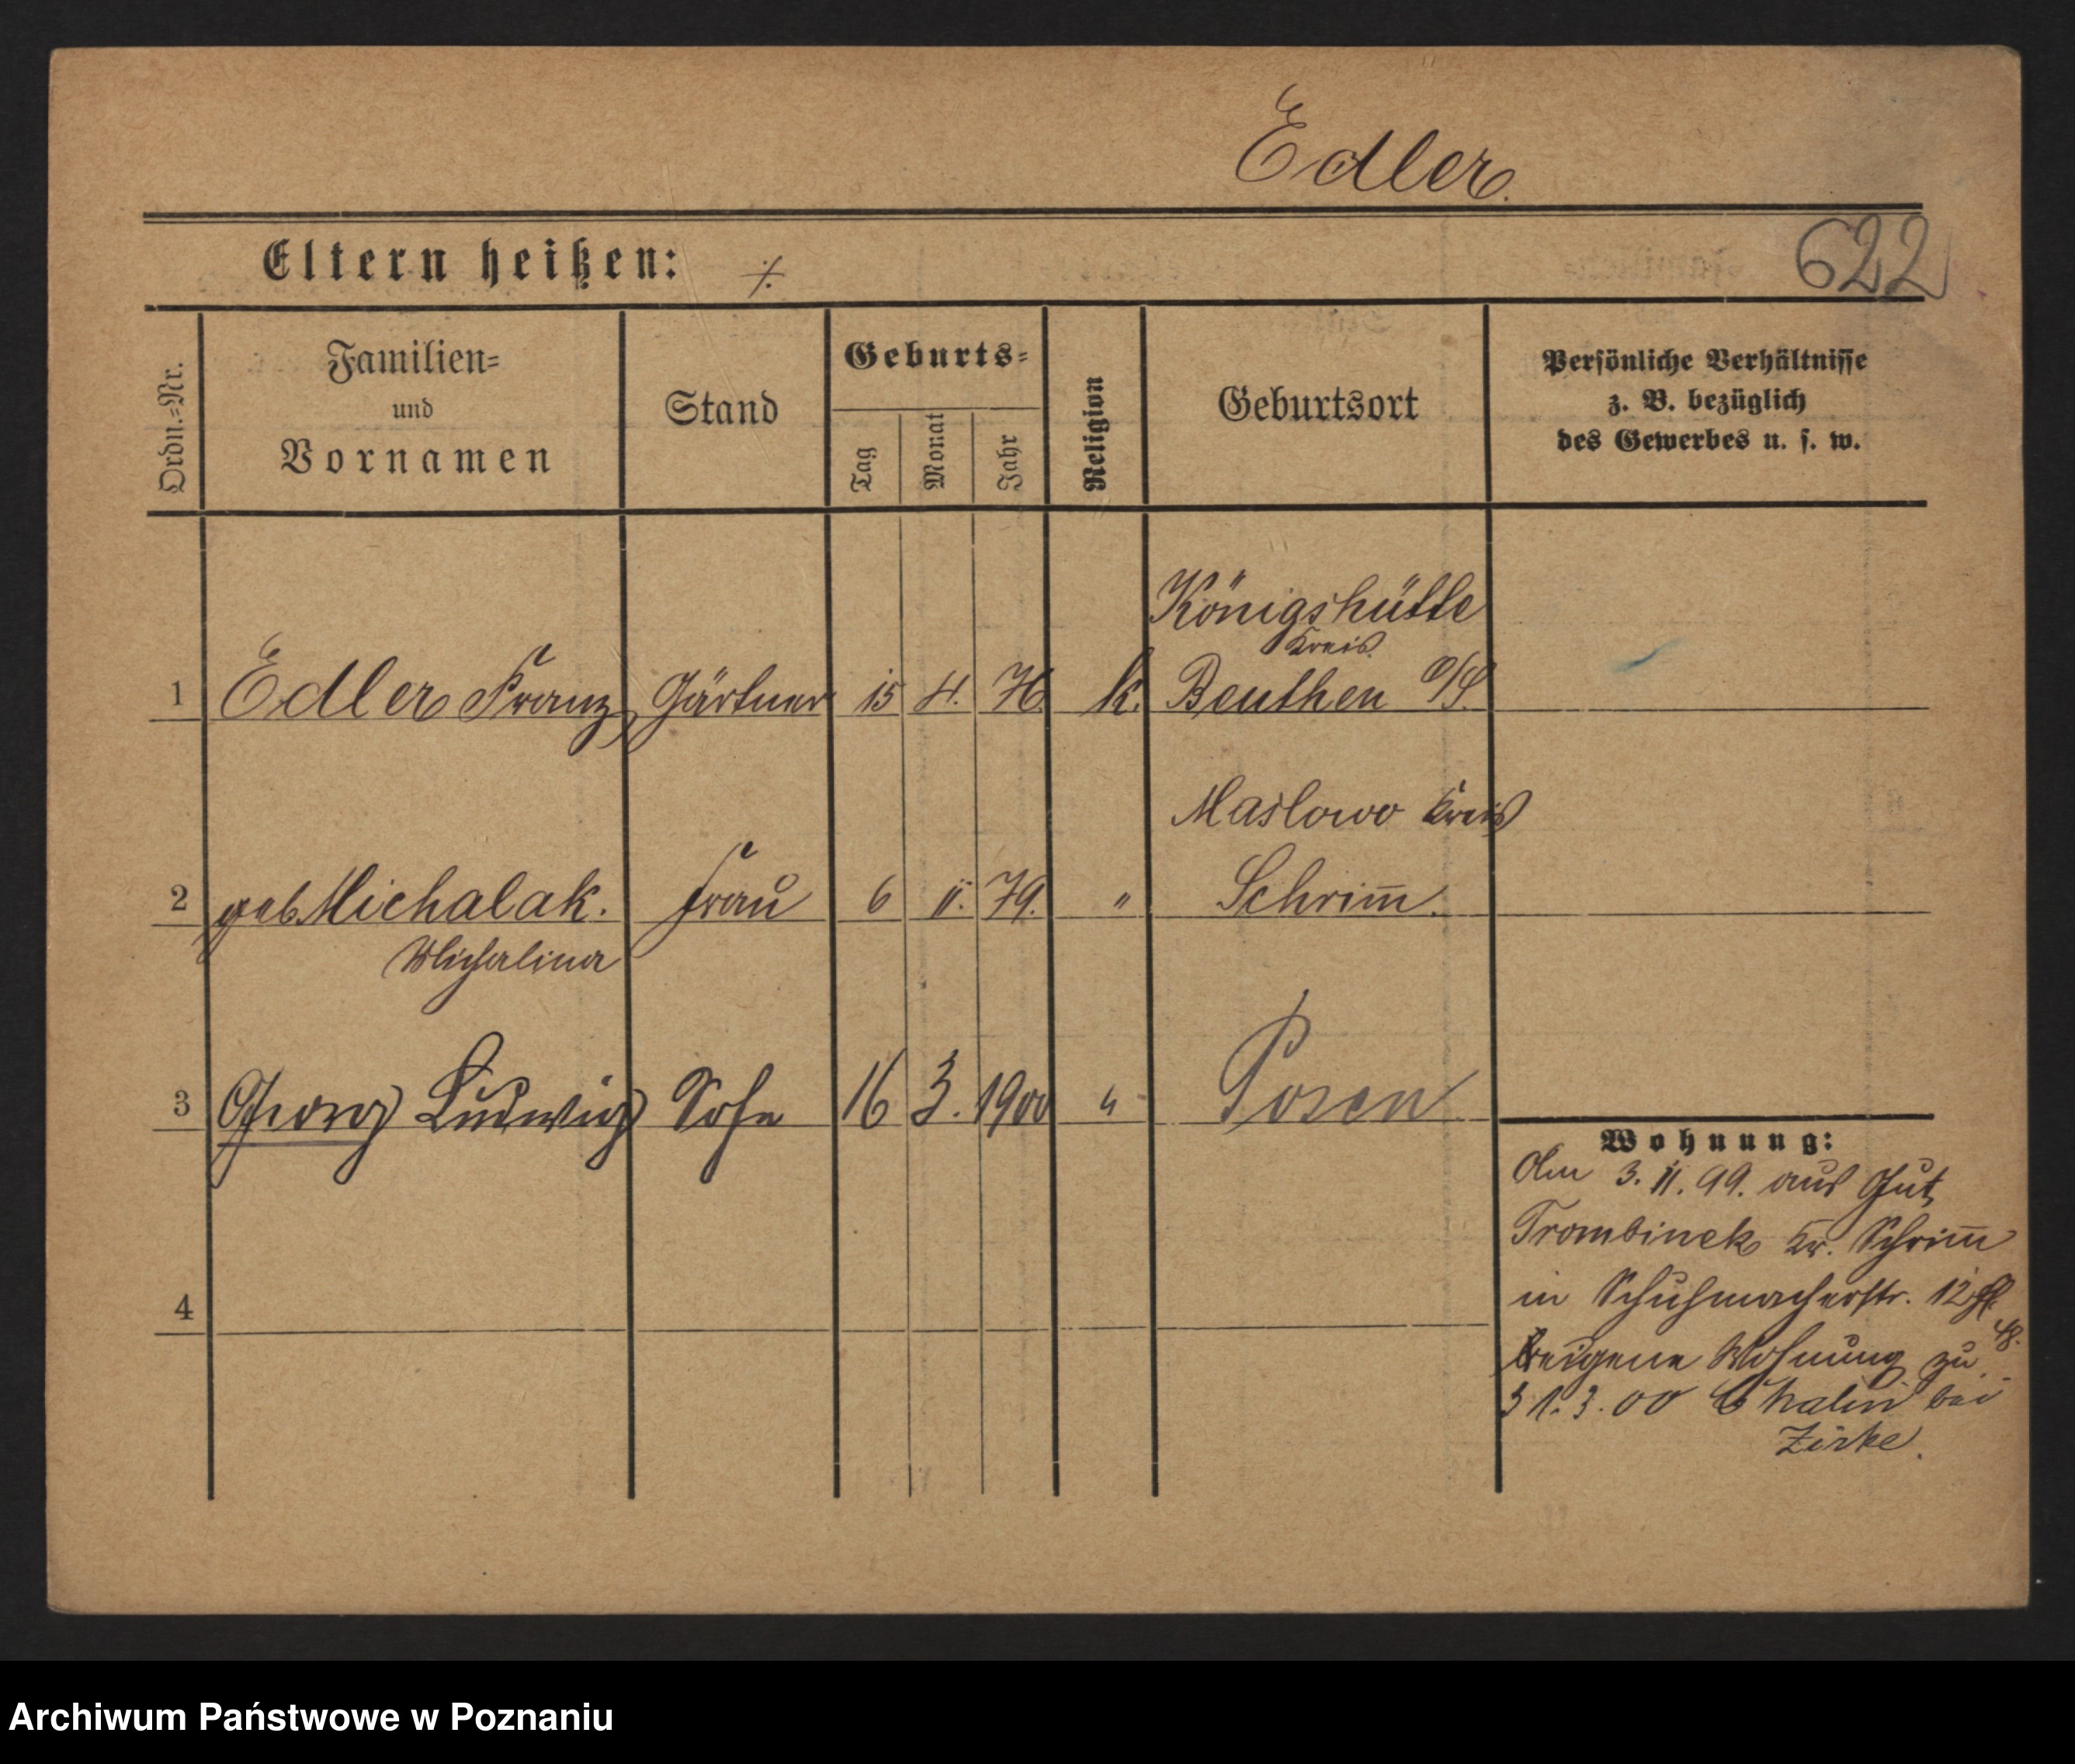 Edler.
622
Eltern heißen: ⁒
Ordn.-Nr.
Familien-
und
Vornamen
Stand
Geburts-
Tag
Monat
Jahr
Religion
Geburtsort
Persönliche Verhältnisse
z. B. bezüglich
des Gewerbes u. s. w.
Königshütte
Kreis
1 Edler Franz Gärtner 15 4. 76 k. Beuthen O/S.
Maslowo Kreis
2 geb. Michalak. Frau 6 11. 79. " Schrim̅.
Michalina
3 Georg Ludwig Sohn 16 3. 1900 " Posen
Wohnung:
Am 3. 11. 99. aus Gut
Trombinek Kr. Schrim̅
in Schuhmacherstr. 12
48.
eigene Wohnung zu
31.3.00 Chalin bei
Zirke.
4
Archiwum Państwowe w Poznaniu